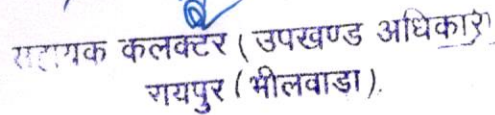 सहायक कलक्टर ( उपखण्ड अधिकारी )
रायपुर ( भीलवाडा ).